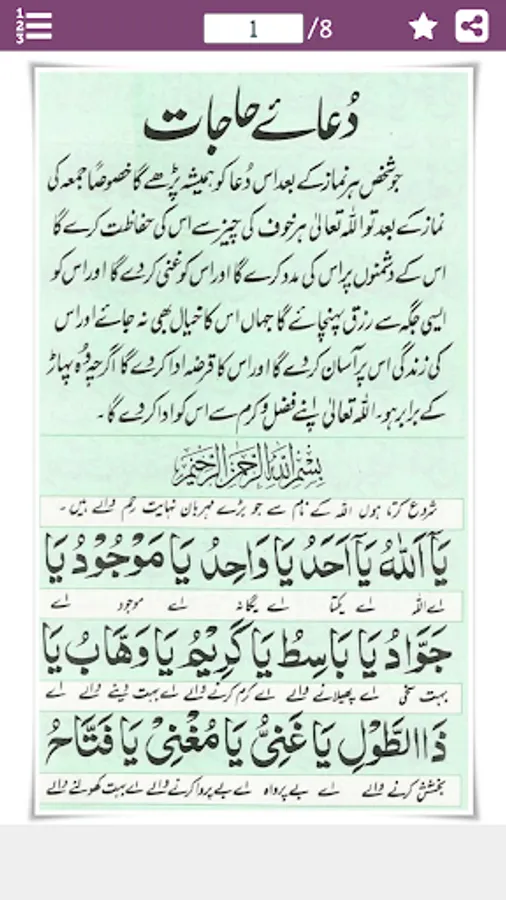 1 /8
دُعائے حاجات
جو شخص ہر نماز کے بعد اس دُعا کو ہمیشہ پڑھے گا خصوصاً جمعہ کی
نماز کے بعد تو اللہ تعالیٰ ہر خوف کی چیز سے اس کی حفاظت کرے گا
اس کے دشمنوں پر اس کی مدد کرے گا اور اس کو غنی کر دے گا اور اس کو
ایسی جگہ سے رزق پہنچائے گا جہاں اس کا خیال بھی نہ جائے اور اس
کی زندگی اس پر آسان کر دے گا اور اس کا قرضہ ادا کر دے گا اگرچہ وہ پہاڑ
کے برابر ہو۔ اللہ تعالیٰ اپنے فضل و کرم سے اس کو ادا کر دے گا۔
بِسْمِ اللهِ الرَّحْمٰنِ الرَّحِيْمِ
شروع کرتا ہوں اللہ کے نام سے جو بڑے مہربان نہایت رحم والے ہیں۔
يَآ اَللّٰهُ يَآ اَحَدُ يَا وَاحِدُ يَا مَوْجُوْدُ يَا
اے اللہ اے یکتا اے یگانہ اے موجود اے
جَوَّادُ يَا بَاسِطُ يَا كَرِيْمُ يَا وَهَّابُ يَا
بہت سخی اے پھیلانے والے اے کرم کرنے والے اے بہت دینے والے اے
ذَا الطَّوْلِ يَا غَنِيُّ يَا مُغْنِيْ يَا فَتَّاحُ
بخشش کرنے والے اے بے پرواہ اے بے پروا کرنے والے اے بہت کھولنے والے